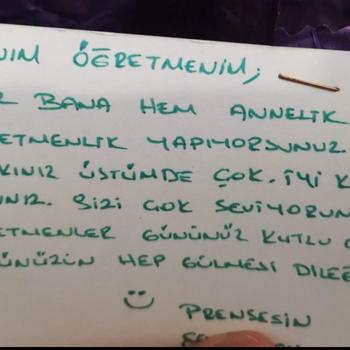 NIM ÖĞRETMENİM;
BANA HEM ANNELİK
ETMENLİK YAPIYORSUNUZ.
KINIZ ÜSTÜMDE ÇOK. İYİ K
NIZ. SİZİ ÇOK SEVİYORUM
ETMENLER GÜNÜNÜZ KUTLU
ÜNÜZÜN HEP GÜLMESİ DİLEĞ
PRENSESİN